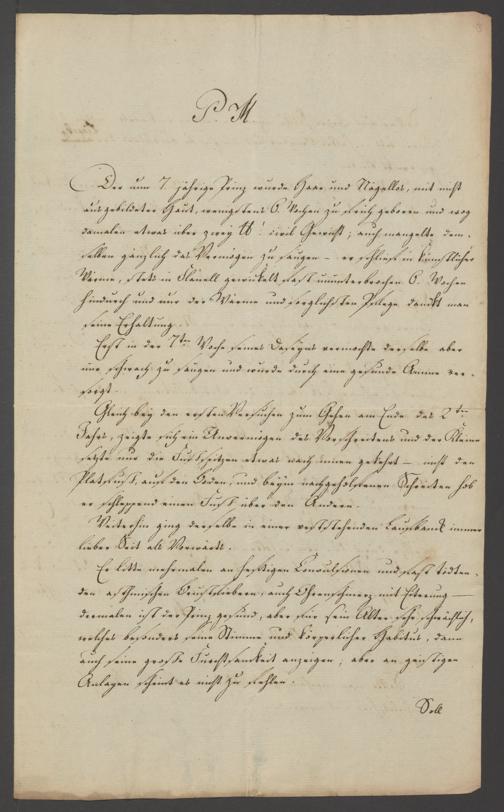 P. M
Der nun 7 jährige Prinz wurde Haar und Nägellos, mit nicht
ausgebildeter Haut, wenigstens 6. Wochen zu früh geboren und wog
damalen etwas über zwey ℔. civil Gewicht; auch mangelte dem-
selben gänzlich das Vermögen zu saugen – er schlief in künstlicher
Wärme, stets in Flanell gewickelt fast ununterbrochen 6. Wochen
hindurch und nur der Wärme und sorglichsten Pflege dankt man
seine Erhaltung.
Erst in der 7ten Woche seines Daseyns vermochte derselbe aber
nur schwach zu saugen und wurde durch eine gesunde Amme ver-
sorgt.
Gleich bey den ersten Versuchen zum Gehen am Ende des 2ten
Jahrs, zeigte sich ein Unvermögen des Vorschreitens und der Kleine
setzte nur die Fusspitzen etwas nach innen gekehrt – nicht den
Plattfuß, auf den Boden, und beym nachgeholfenen Schreiten hob
er schleppend einen Fuß über den Andern.
Weiterhin ging derselbe in einer feststehenden Laufbank immer
lieber Seit als Vorwärts.
Er litte mehrmalen an heftigen Convulsionen und fast tödten-
den asthmischen Brustfiebern, auch Ohrenschmerz mit Eiterung –
dermalen ist der Prinz gesund, aber für sein Alter sehr schwächlich,
welches besonders seine Stimme und körperlicher Habitus, dann
auch seine große Furchtsamkeit anzeigen; aber an geistigen
Anlagen scheint es nicht zu fehlen.
Soll